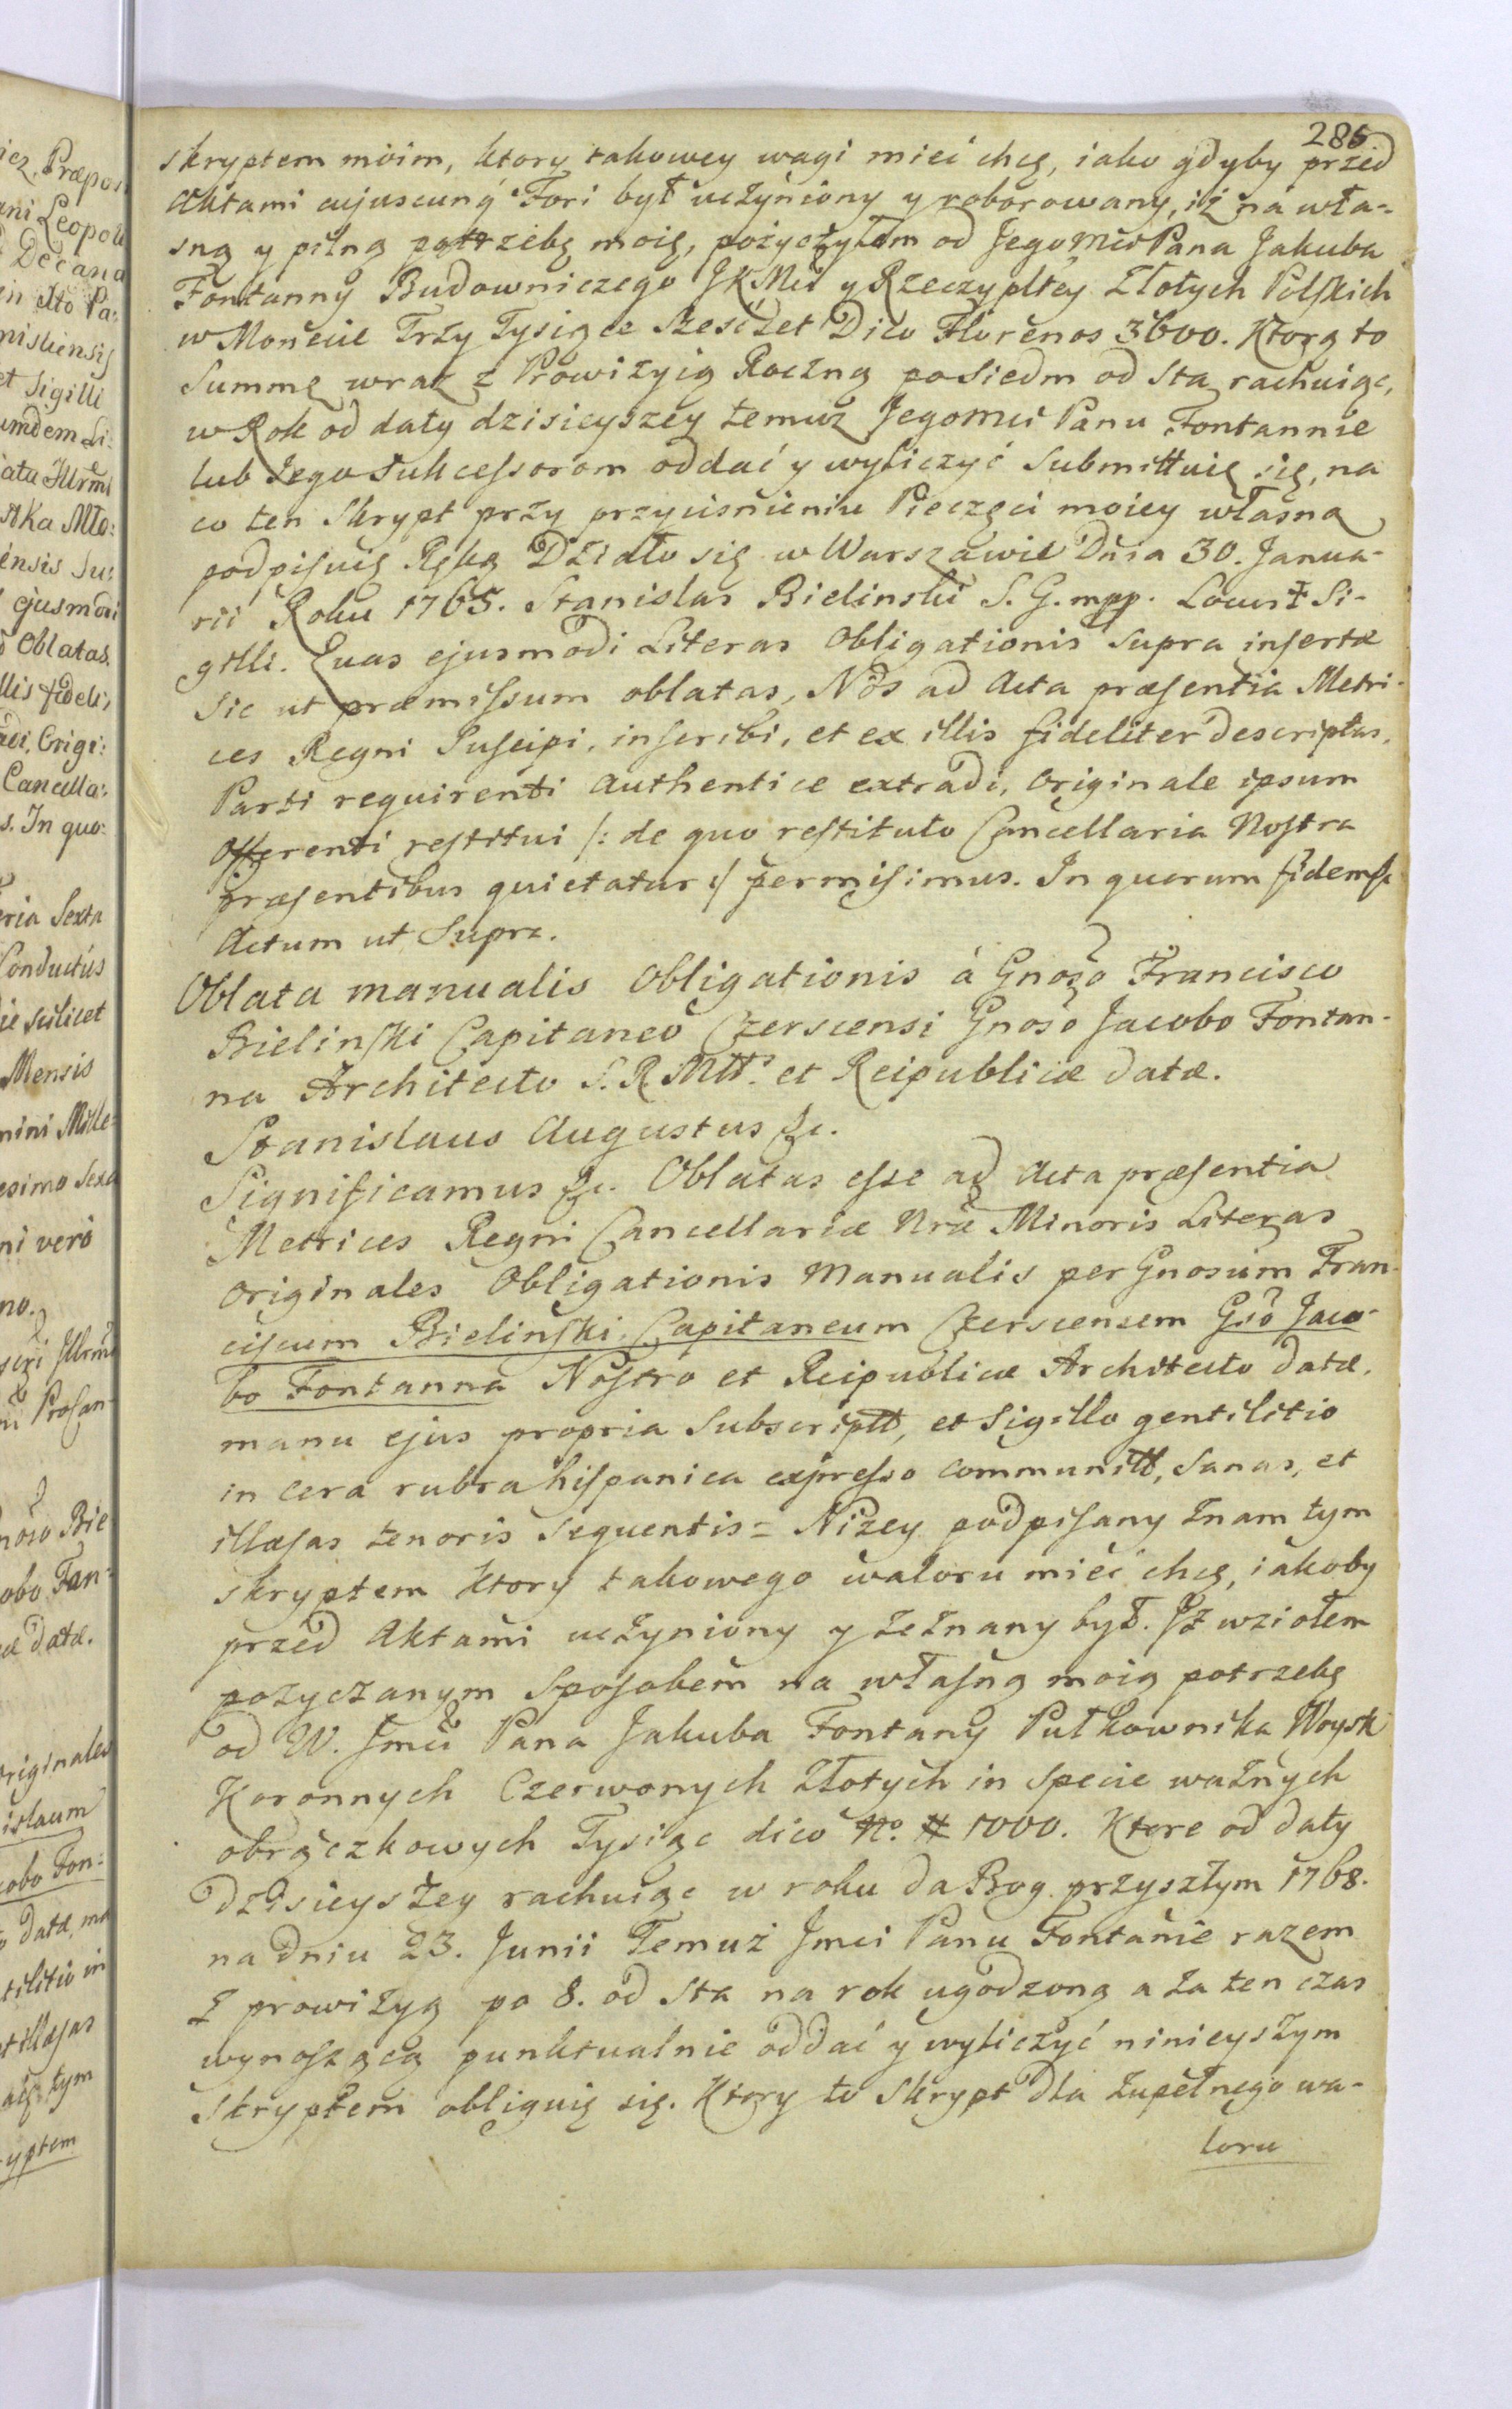 286
skryptem moim, ktory takowey wagi mieć chcę, iako gdyby przed
Aktami cujuscunq Fori był uczyniony y roborowany, iż na wła-
sną y pilną potrzebę moię, pożyczyłem od Jegomći Pana Jakuba
Fontanny Budowniczego JKMći y Rzeczyplłey Złotych Polskich
w Monecie Trzy Tysiące Szesćzet Dico Florenos 3600. Ktorą to
Summę wraz z Prowizyią Roczną po Siedm od Sta rachuiąc,
w Rok od daty dzisieyszey temuż Jegomći Panu Fontannie
lub Jego Sukcessorom oddać y wyliczyć Submittuię się, na
co ten Skrypt przy przycisnieniu Pieczęci moiey własną
podpisuię Ręką Działo się w Warszawie Dnia 30. Janua-
rii Roku 1765. Stanislas Bielinski S. G. mpp. Locus Si-
gilli. Quas ejusmodi Literas Obligationis Supra insertæ
Sic ut præmissum oblatas, Nos ad Acta præsentia Metri-
ces Regni Suscipi, inscribi, et ex illis fideliter descriptas,
Parti requirenti Authentice extradi, Originale ipsum
Offerenti restitui /: de quo restituto Cancellaria Nostra
præsentibus quietatur :/ permisimus. In quorum fidem &c
Actum ut Supra.
Oblata manualis Obligationis à Gnoso Francisco
Bielinski Capitaneo Czerscensi Gnoso Jacobo Fontan-
na Architecto S. R. Mtt. et Reipublicæ datæ.
Stanislaus Augustus &c.
Significamus &c. Oblatas esse ad Acta præsentia
Metrices Regni Cancellariæ Nræ Minoris Literas
Originales Obligationis Manualis per Gnosum Fran-
ciscum Bielinski Capitaneum Czerscensem Gso Jaco-
bo Fontanna Nostro et Reipublicæ Architecto datæ,
manu ejus propria Subscriptt, et Sigillo gentilitio
in cera rubra hispanica expresso communitt, Sanas, et
illæsas tenoris sequentis = Niżey podpisany Znam tym
skryptem ktory takowego waloru mieć chcę, iakoby
przed Aktami uczyniony y zeznany był. Jż wziołem
pożyczanym Sposobem na własną moią potrzebę
od W. Jmći Pana Jakuba Fontany Pułkownika Woysk
Koronnych Czerwonych Złotych in Specie ważnych
obrączkowych Tysiąc dico No. # 1000. Ktore od daty
Dzisieyszey rachuiąc w roku da Bog przyszłym 1768.
na dniu 23. Junii Temuż Jmći Panu Fontanie razem
z prowizyą po 8. od Sta na rok ugodzoną a za ten czas
wynoszącą punktualnie oddać y wyliczyć ninieyszym
Skryptem obliguię się. Ktory to Skrypt dla zupełnego wa-
loru